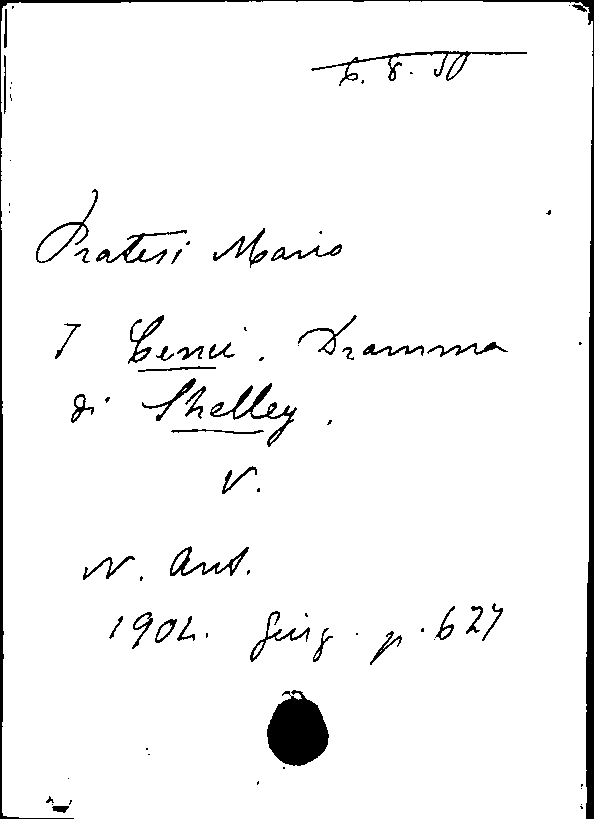 6. 8. 50
Pratesi Mario
I Cenci. Dramma
di Shelley.
V.
N. Ant.
1902. giug. p. 627